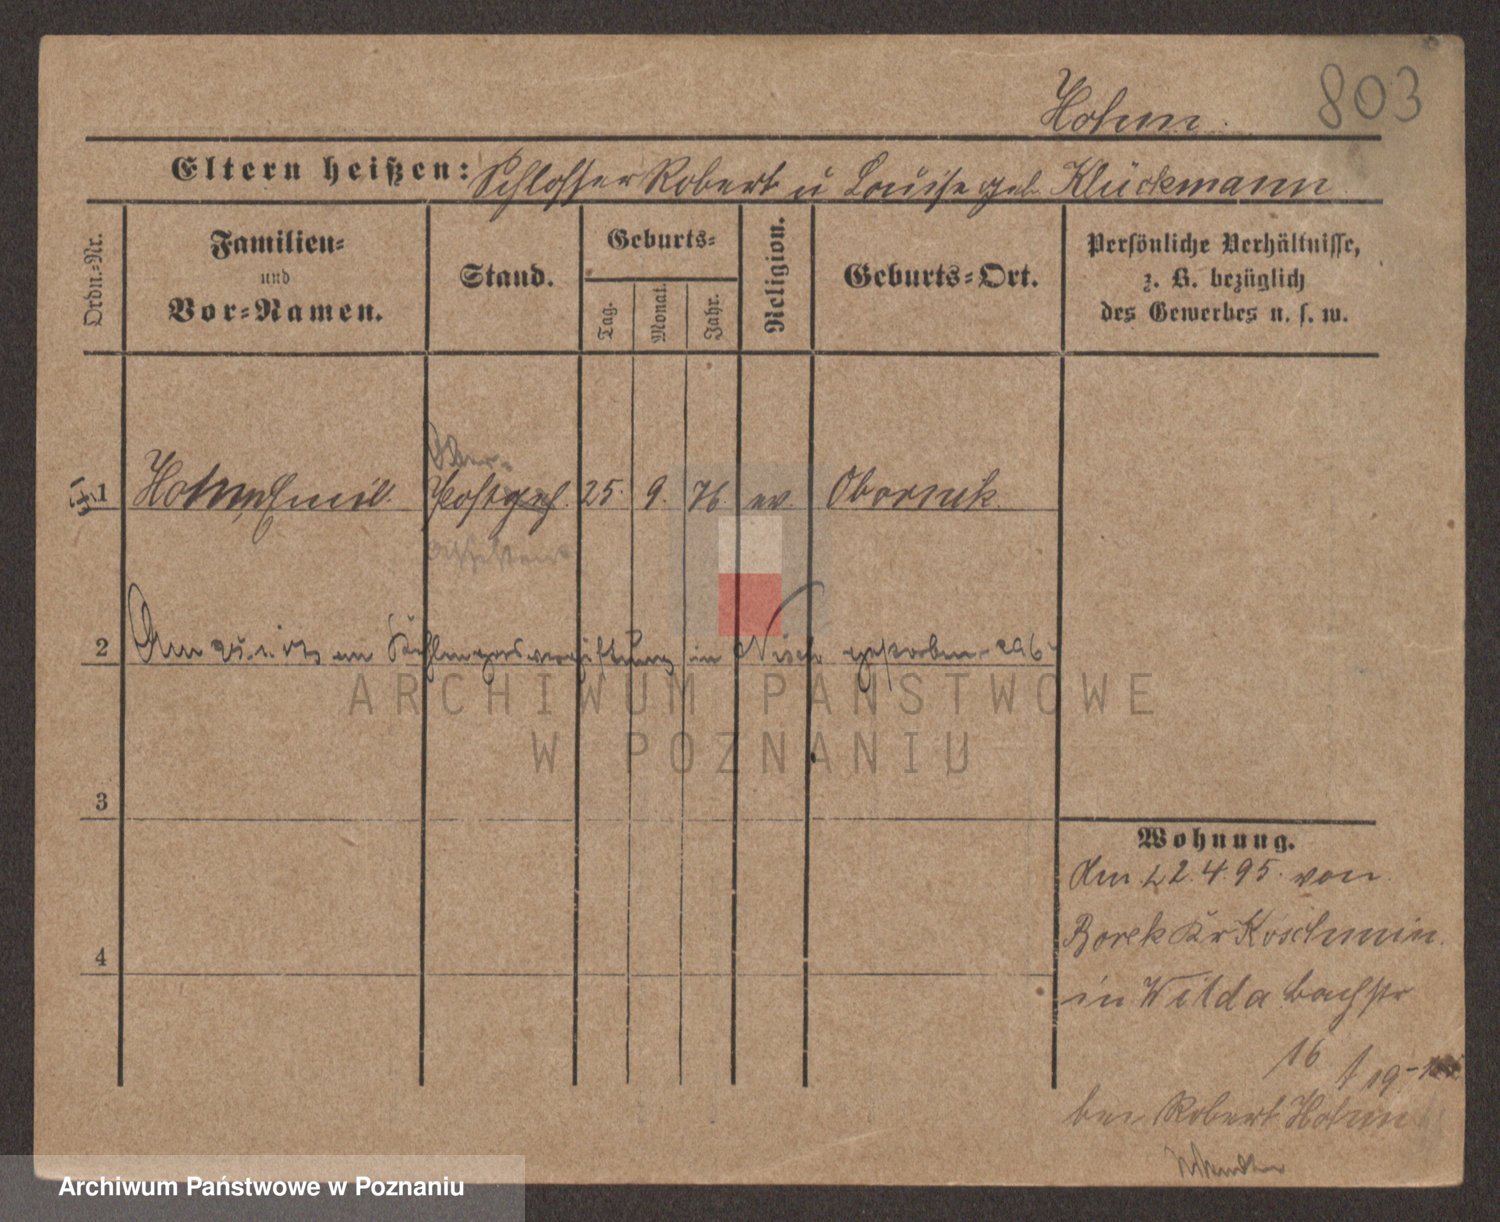 803
Hohm.
Eltern heißen: Schlosser Robert u Louise geb. Klückmann.
Ordn.-Nr.
Familien-
und
Vor-Namen.
Stand.
Geburts-
Tag.
Monat.
Jahr.
Religion.
Geburts-Ort.
Persönliche Verhältnisse,
z. B. bezüglich
des Gewerbes u. s. w.
Ober-
1 Hohm, Emil Postgeh. 25. 9. 76 ev. Obornik.
2 Am an in gestorben
ARCHIWUM PAŃSTWOWE
W POZNANIU
3
4
Wohnung.
Am 22.4.95. von
Borek Kr Koschmin
in Wilda Bachstr
16
bei Robert Hohm
Archiwum Państwowe w Poznaniu